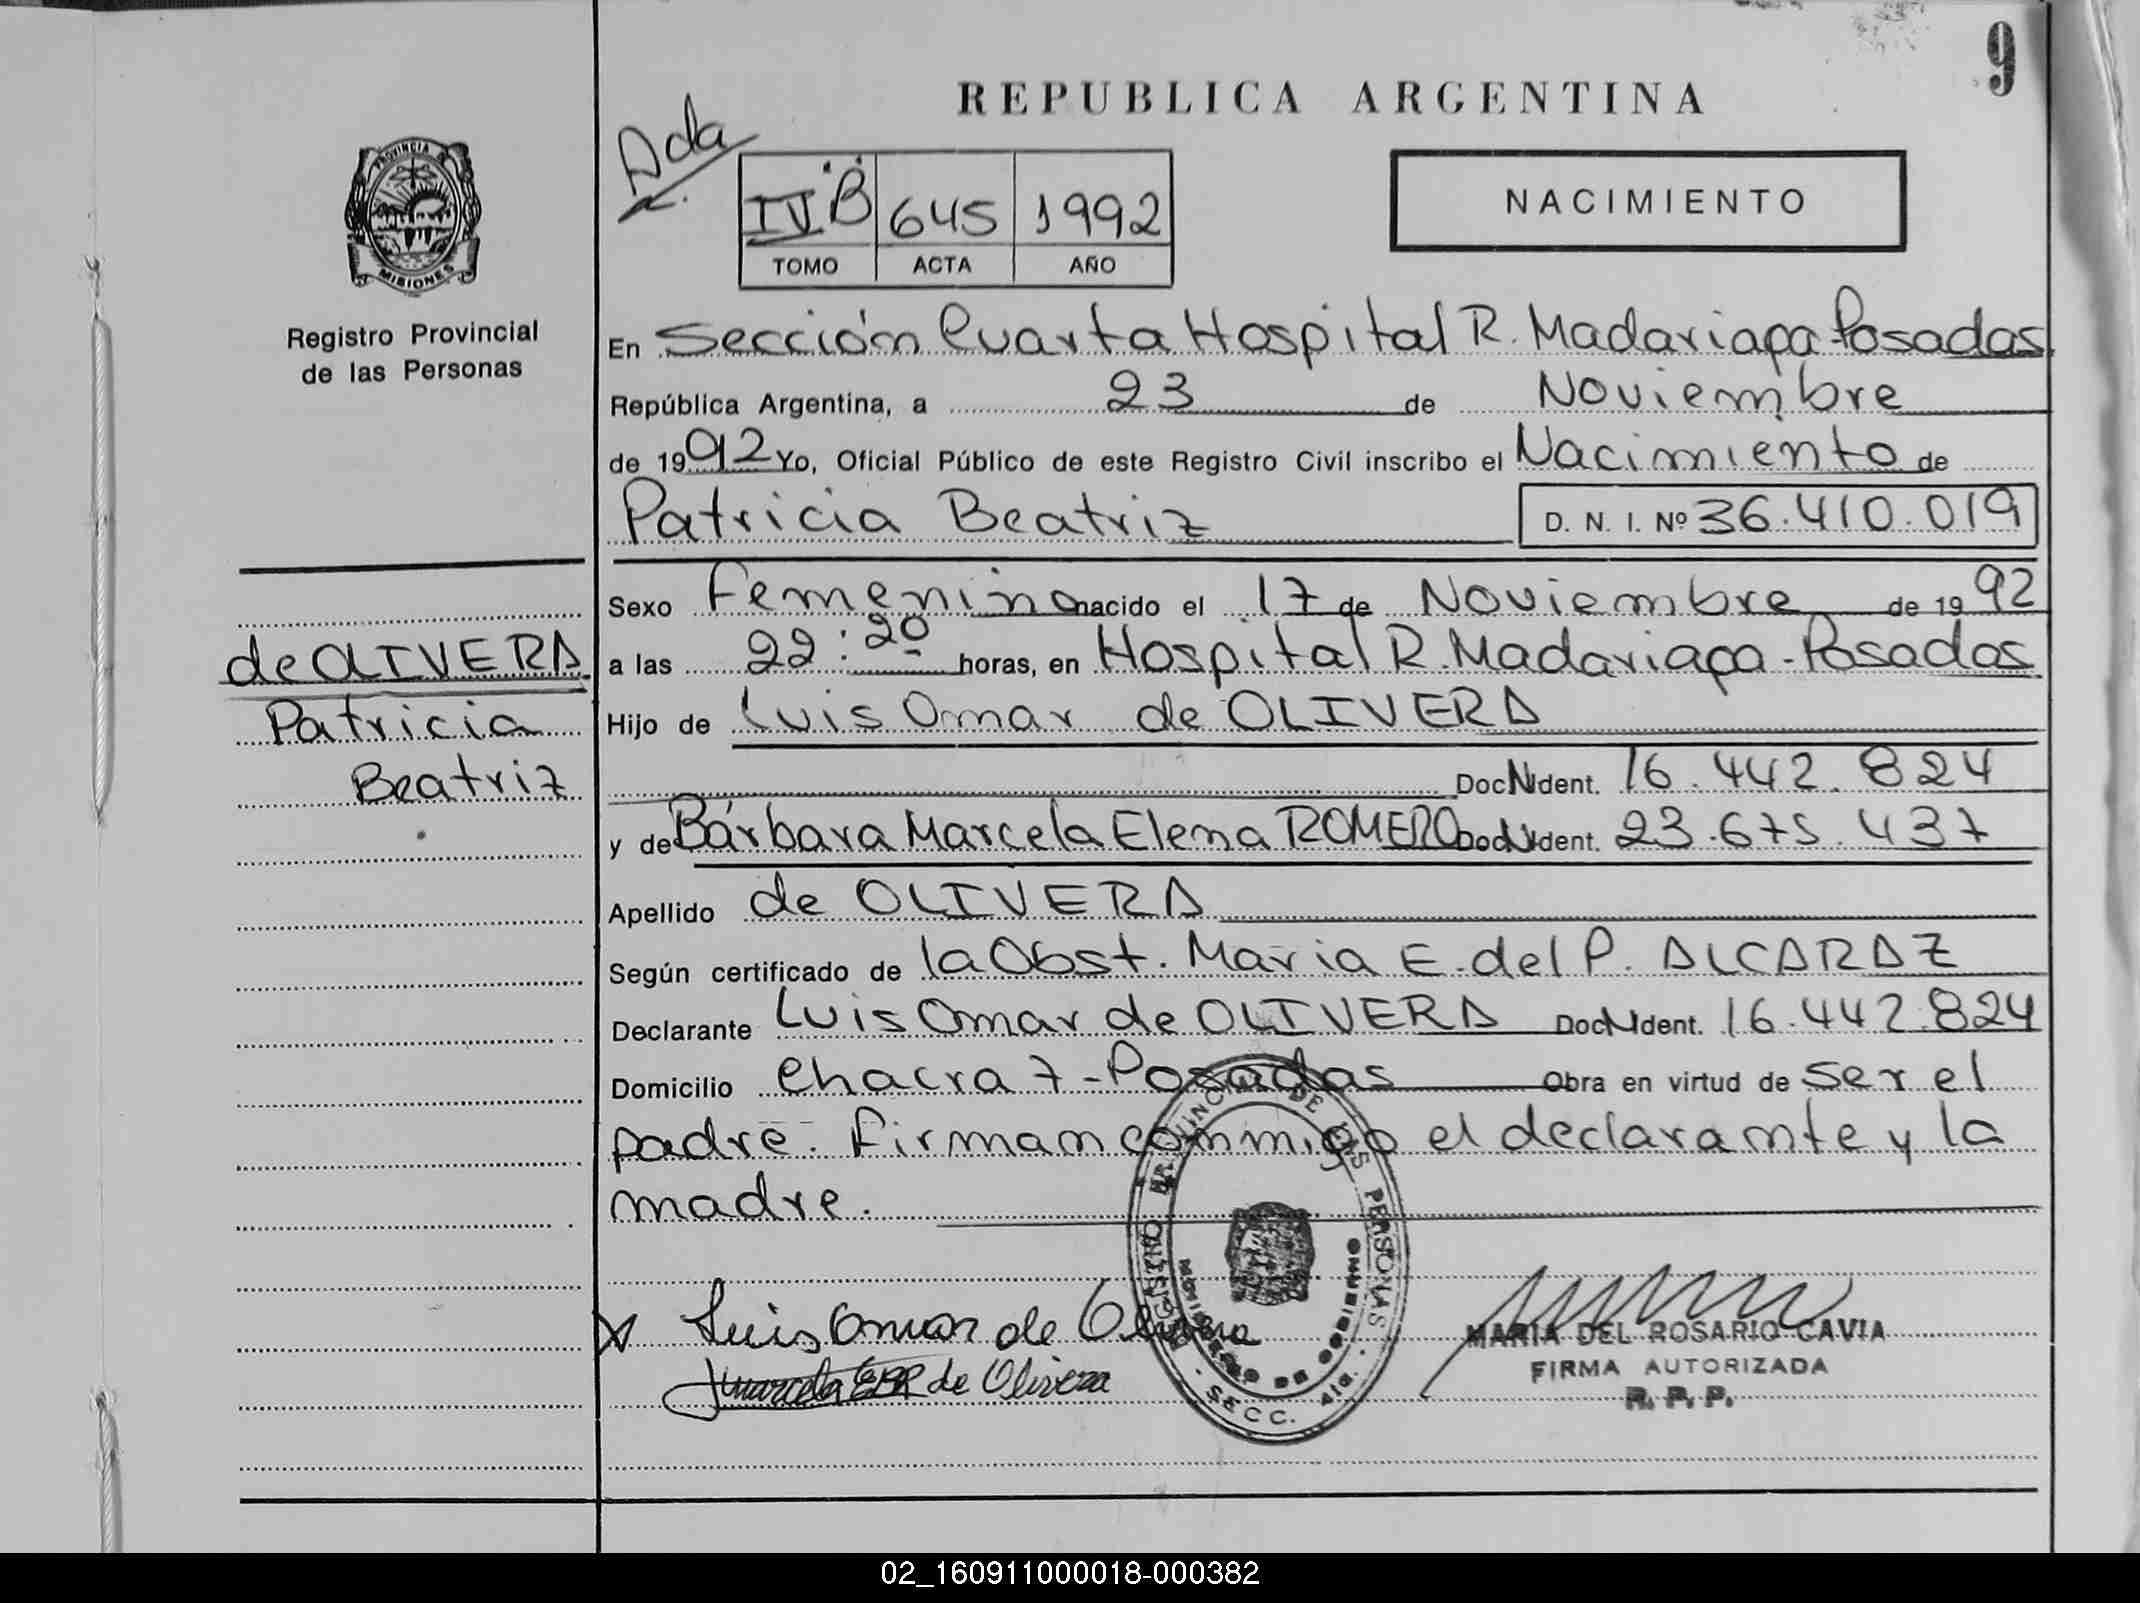 9
REPUBLICA ARGENTINA
Ada
IV "B" 645 1992
TOMO ACTA AÑO
NACIMIENTO
PROVINCIA DE
MISIONES
Registro Provincial
de las Personas
En Sección Cuarta Hospital R. Madariaga-Posadas
República Argentina, a 23 de Noviembre
de 1992 Yo, Oficial Público de este Registro Civil inscribo el Nacimiento de
Patricia Beatriz D. N. I. Nº 36.410.019
de OLIVERA
Patricia
Beatriz
Sexo Femenino nacido el 17 de Noviembre de 1992
a las 22:20 horas, en Hospital R. Madariaga-Posadas
Hijo de Luis Omar de OLIVERA
Doc. Ident. 16.442.824
y de Bárbara Marcela Elena ROMERO Doc. Ident. 23.675.437
Apellido de OLIVERA
Según certificado de la Obst. Maria E. del P. ALCARAZ
Declarante Luis Omar de OLIVERA Doc. Ident. 16.442.824
Domicilio Chacra 7-Posadas Obra en virtud de ser el
padre. Firman conmigo el declarante y la
madre.
REGISTRO PROVINCIAL DE LAS PERSONAS
MINISTERIO DE GOBIERNO
SECC. 4ta.
x Luis Omar de Olivera
Marcela ERR de Olivera
MARIA DEL ROSARIO CAVIA
FIRMA AUTORIZADA
R. P. P.
02_160911000018-000382